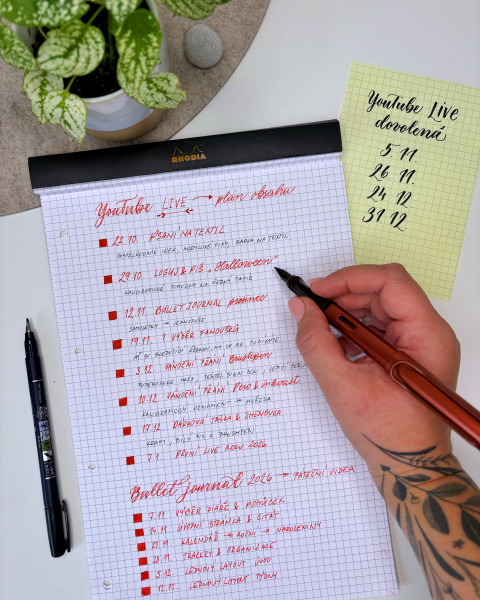 RHODIA
YouTube LIVE → plán obsahu
22.10. PSANÍ NA TEXTIL
29.10. LOSUJ & PIŠ "Halloween"
12.11. BULLET JOURNAL prosinec
19.11. ? VÝBĚR FANOUŠKŮ
3.12. VÁNOČNÍ PŘÁNÍ Brushpen
10.12. VÁNOČNÍ PŘÁNÍ Pero & inkoust
KALIGRAFICKÝ ORNAMENT → HVĚZDA
17.12. DÁRKOVÁ TAŠKA & JMENOVKA
KRAFT, BÍLÝ FIX A
7.1. PRVNÍ LIVE ROKU 2026
Bullet journal 2026 → PÁTEČNÍ VIDEA
7.11. VÝBĚR DIÁŘE & POMŮCEK
14.11. ÚVODNÍ STRÁNKA & CITÁT
21.11. KALENDÁŘ → ROČNÍ → NAROZENINY
28.11. TRACKERY & ORGANIZACE
5.12. LEDNOVÝ LAYOUT ÚVOD
12.12. LEDNOVÝ LAYOUT TÝDNY
YouTube LIVE
dovolená
5 11.
26 11.
24 12
31 12